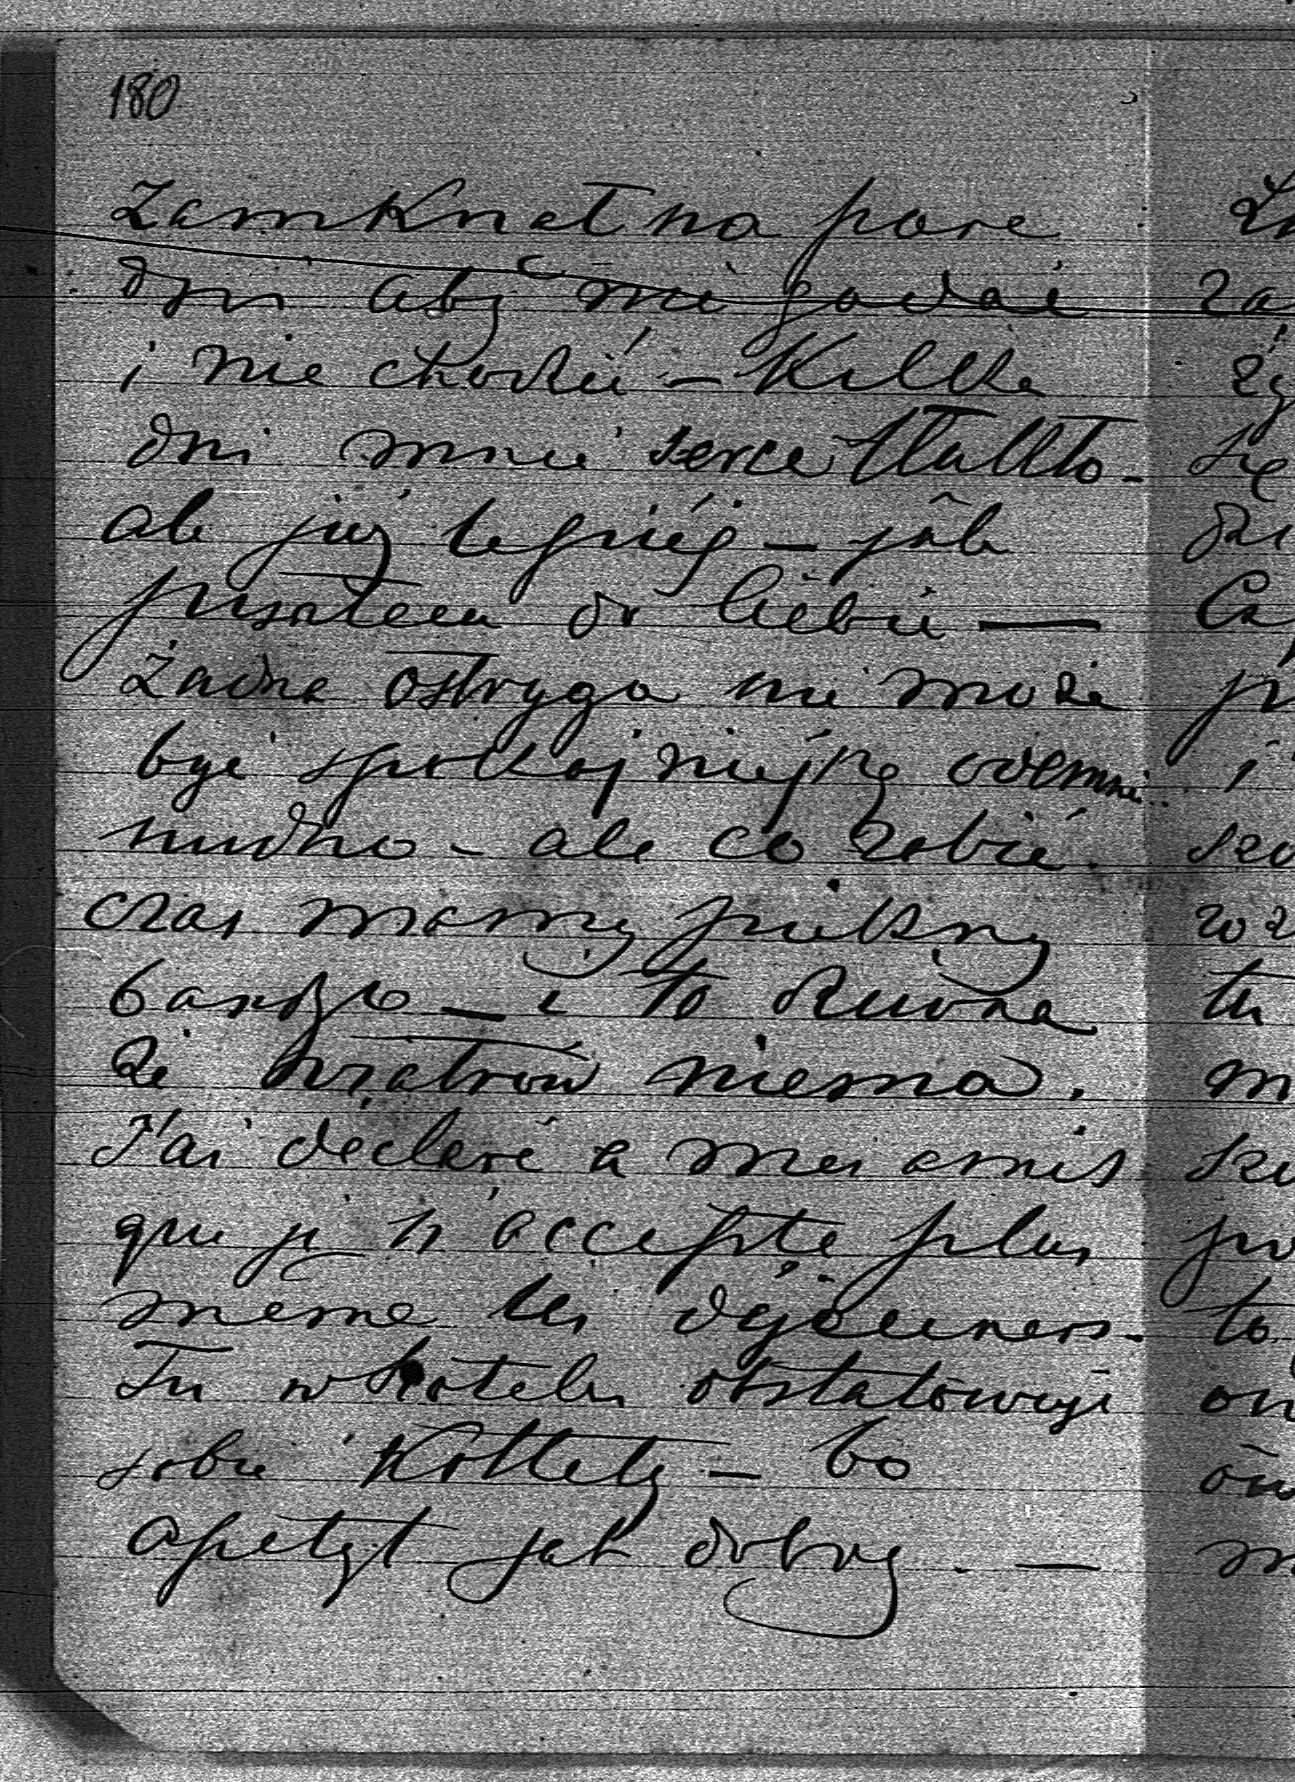 180
Zamknął na parę
dni abÿ nie gadać
i nie chodzić – Kilka
dni mnie serce tłukło –
ale już lepiéj – jak
pisałem do Ciebie —
Żadna ostryga nie może
być spokojniejszą odemnie..
nudno – ale co robić.
czas mamy piekny
bardzo – i to dziwne
że wiatrów niema.
J'ai déclaré a mes amis
que je n'accepte plus
meme les déjeuners –
Tu w hotelu obstalowuje
sobie Kotlety – bo
apetyt jest dobry. —